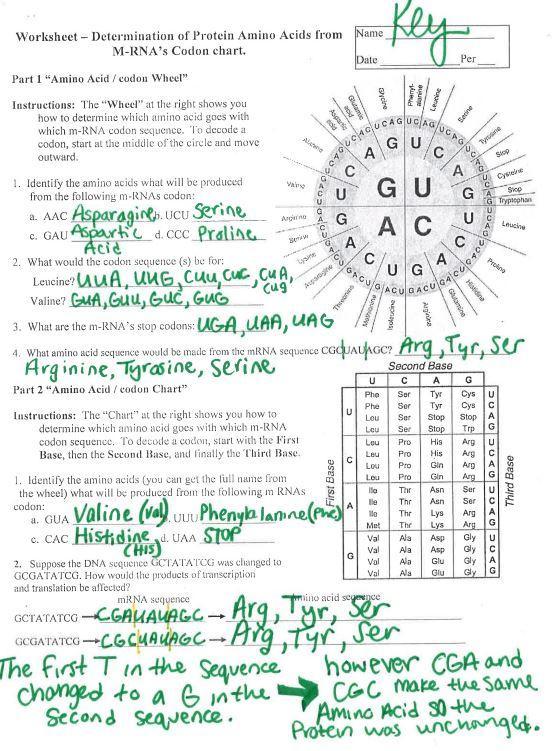 Key
Worksheet – Determination of Protein Amino Acids from
M-RNA's Codon chart.
Name
Date Per
Part 1 "Amino Acid / codon Wheel"
Instructions: The "Wheel" at the right shows you
how to determine which amino acid goes with
which m-RNA codon sequence. To decode a
codon, start at the middle of the circle and move
outward.
Alanine
Aspartic acid
Glutamic acid
Glycine
Phenyl-alanine
Leucine
Serine
Tyrosine
Stop
Cysteine
Stop
Tryptophan
Leucine
Proline
Histidine
Glutamine
Arginine
Isoleucine
Methionine
Threonine
Asparagine
Lysine
Serine
Arginine
Valine
G U
A C
1. Identify the amino acids what will be produced
from the following m-RNAs codon:
a. AAC Asparagine b. UCU Serine
c. GAU Aspartic Acid d. CCC Proline
2. What would the codon sequence (s) be for:
Leucine? UUA, UUG, CUU, CUC, CUA, CUG
Valine? GUA, GUU, GUC, GUG
3. What are the m-RNA's stop codons: UGA, UAA, UAG
4. What amino acid sequence would be made from the mRNA sequence CGCUAUAGC? Arg, Tyr, Ser
Arginine, Tyrosine, Serine
Part 2 "Amino Acid / codon Chart"
Instructions: The "Chart" at the right shows you how to
determine which amino acid goes with which m-RNA
codon sequence. To decode a codon, start with the First
Base, then the Second Base, and finally the Third Base.
Second Base
U C A G
First Base
Third Base
U
Phe Ser Tyr Cys U
Phe Ser Tyr Cys C
Leu Ser Stop Stop A
Leu Ser Stop Trp G
C
Leu Pro His Arg U
Leu Pro His Arg C
Leu Pro Gln Arg A
Leu Pro Gln Arg G
A
Ile Thr Asn Ser U
Ile Thr Asn Ser C
Ile Thr Lys Arg A
Met Thr Lys Arg G
G
Val Ala Asp Gly U
Val Ala Asp Gly C
Val Ala Glu Gly A
Val Ala Glu Gly G
1. Identify the amino acids (you can get the full name from
the wheel) what will be produced from the following m RNAs
codon:
a. GUA Valine (Val) b. UUU Phenylalanine (Phe)
c. CAC Histidine (His) d. UAA STOP
2. Suppose the DNA sequence GCTATATCG was changed to
GCGATATCG. How would the products of transcription
and translation be affected?
mRNA sequence amino acid sequence
GCTATATCG → CGAUAUAGC → Arg, Tyr, Ser
GCGATATCG → CGCUAUAGC → Arg, Tyr, Ser
The first T in the sequence
changed to a G in the
second sequence.
however CGA and
CGC make the same
Amino Acid so the
Protein was unchanged.